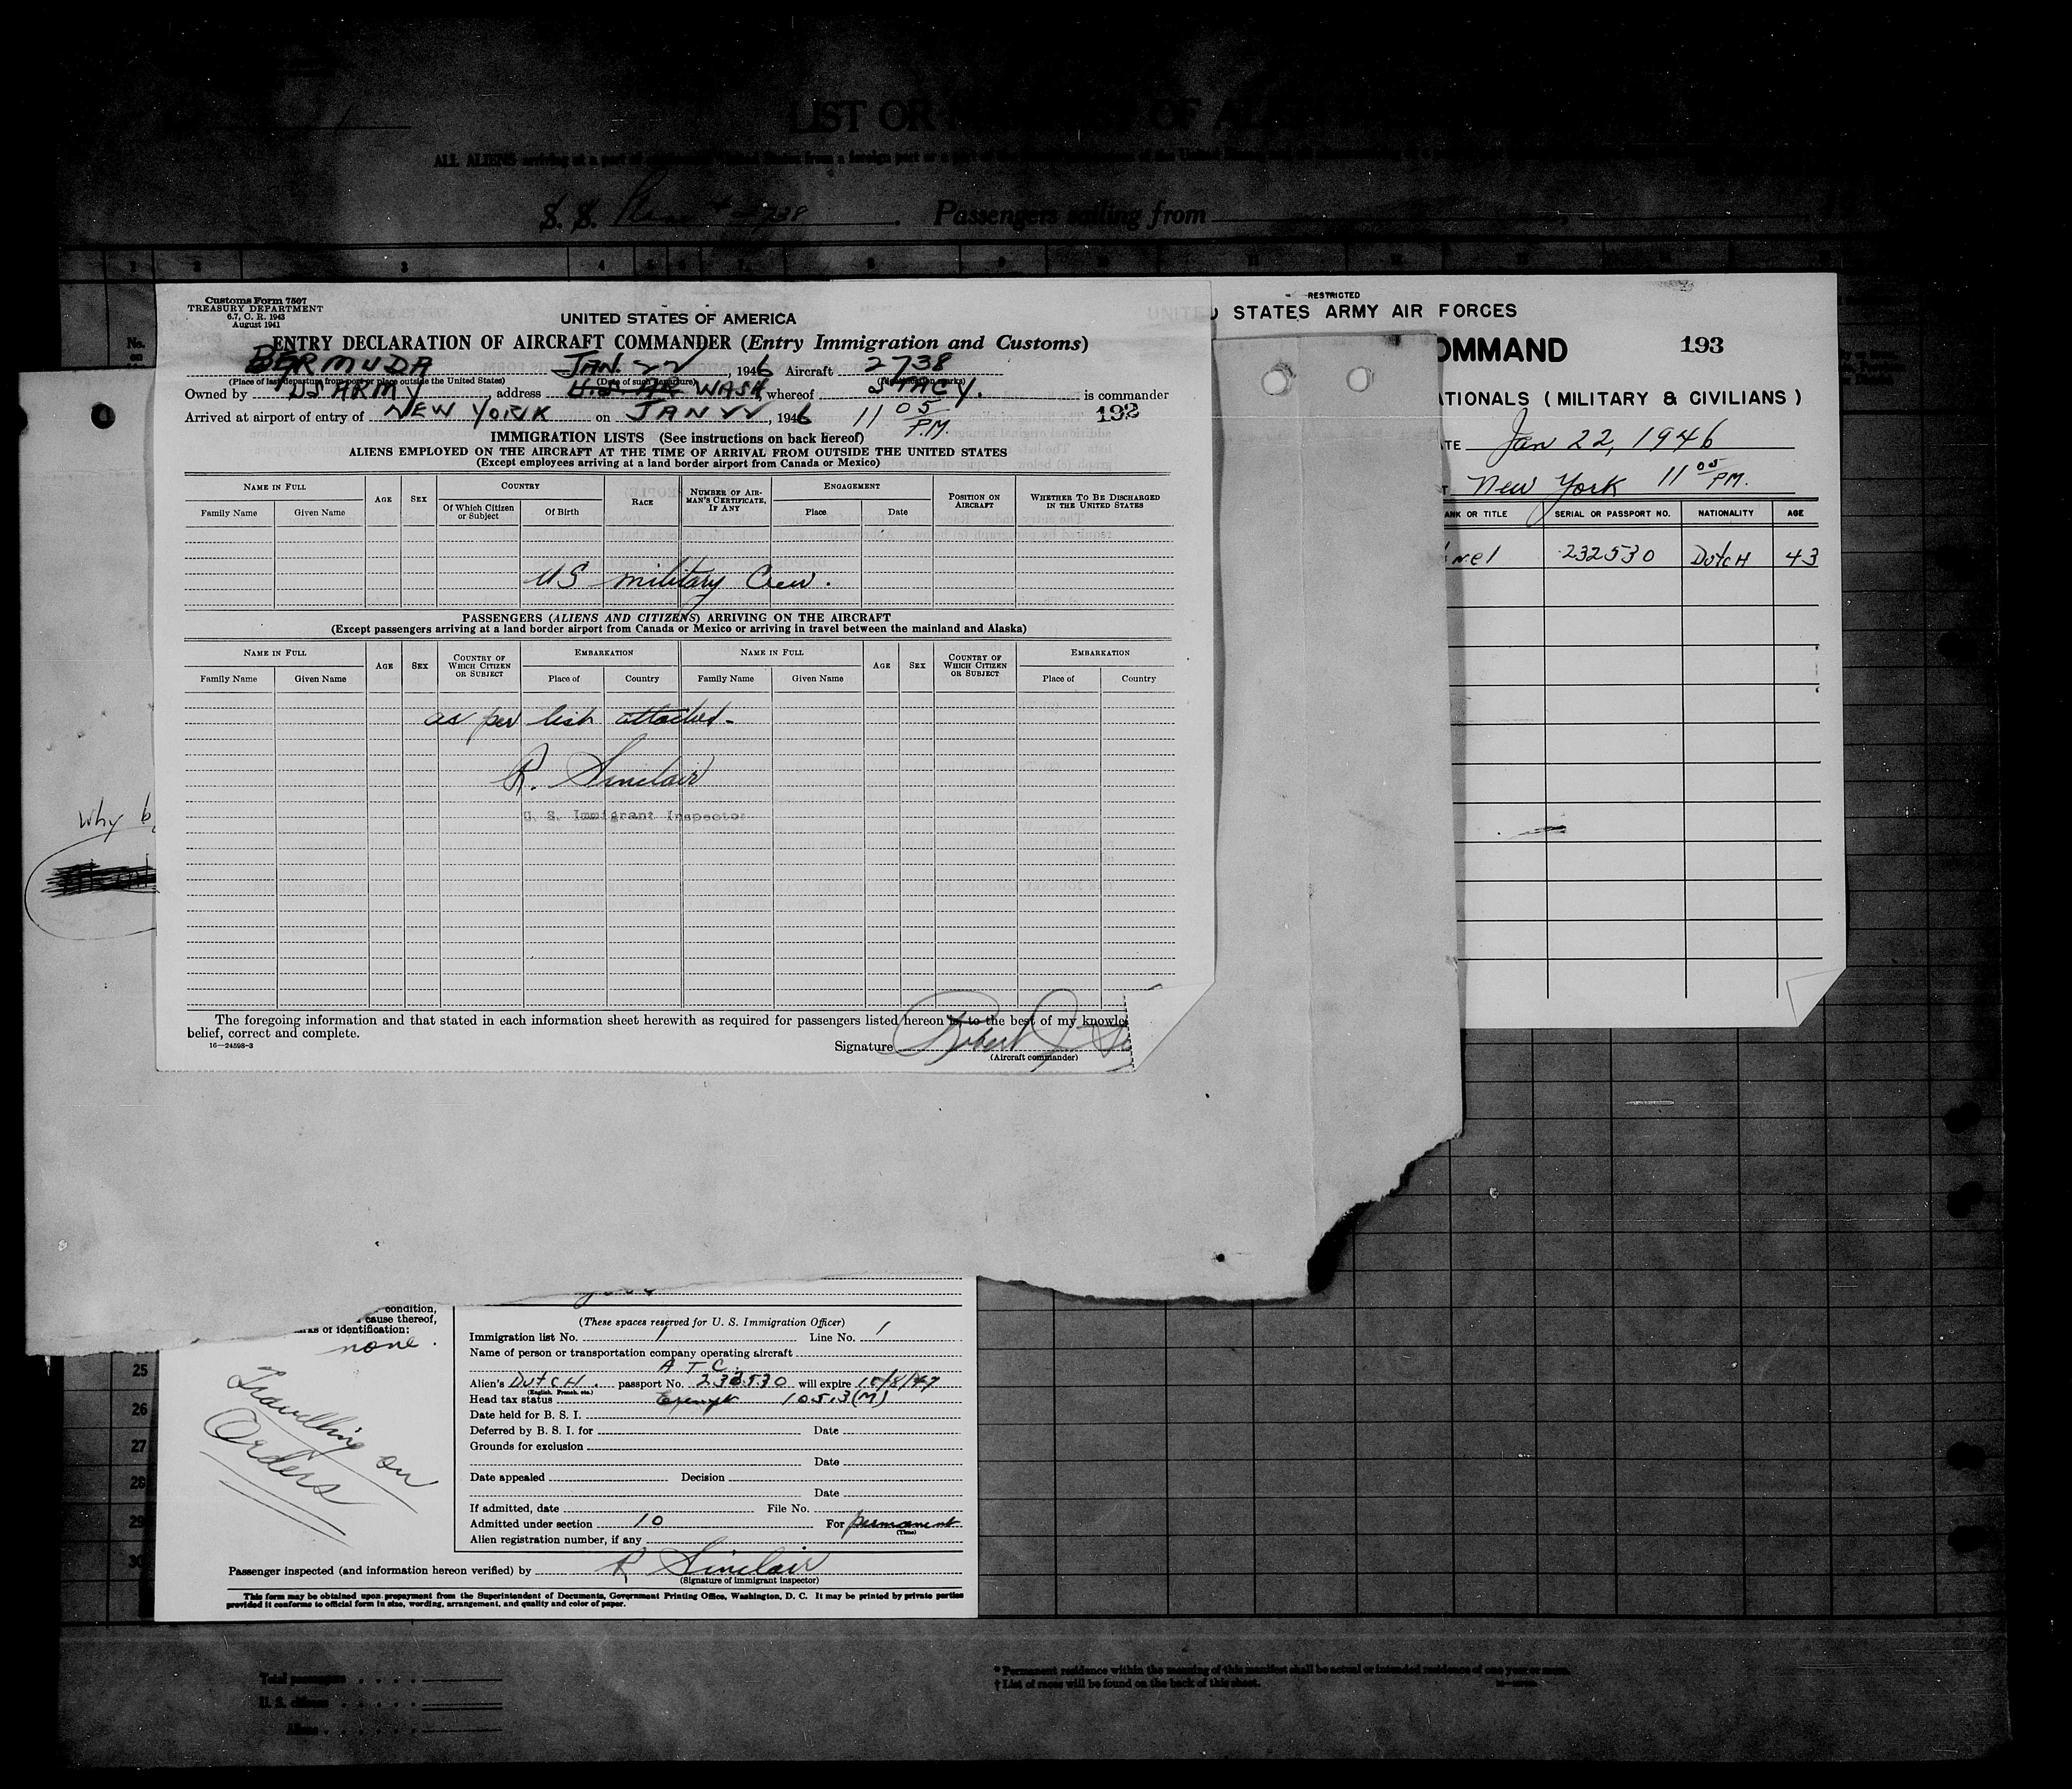 LIST OR
OF
ALL ALIENS arriving at a port of
S. S. Plane # 2738 Passengers sailing from
1 2 3 4 8 9 10 11 12 13
No.
on
Customs Form 7507
TREASURY DEPARTMENT
6.7, C. R. 1943
August 1941
UNITED STATES OF AMERICA
ENTRY DECLARATION OF AIRCRAFT COMMANDER (Entry Immigration and Customs)
BERMUDA JAN. 22, 1946 Aircraft 2738
(Place of last departure from port or place outside the United States) (Date of such departure)
Owned by US ARMY address WASH, whereof STACY. is commander
Arrived at airport of entry of NEW YORK on JAN 22, 1946 11 05 P.M.
192
IMMIGRATION LISTS (See instructions on back hereof)
ALIENS EMPLOYED ON THE AIRCRAFT AT THE TIME OF ARRIVAL FROM OUTSIDE THE UNITED STATES
(Except employees arriving at a land border airport from Canada or Mexico)
NAME IN FULL AGE SEX COUNTRY RACE NUMBER OF AIRMAN'S CERTIFICATE, IF ANY ENGAGEMENT POSITION ON AIRCRAFT WHETHER TO BE DISCHARGED IN THE UNITED STATES
Family Name Given Name Of Which Citizen or Subject Of Birth Place Date
US military Crew.
PASSENGERS (ALIENS AND CITIZENS) ARRIVING ON THE AIRCRAFT
(Except passengers arriving at a land border airport from Canada or Mexico or arriving in travel between the mainland and Alaska)
NAME IN FULL AGE SEX COUNTRY OF WHICH CITIZEN OR SUBJECT EMBARKATION NAME IN FULL AGE SEX COUNTRY OF WHICH CITIZEN OR SUBJECT EMBARKATION
Family Name Given Name Place of Country Family Name Given Name Place of Country
as per list attached.
R. Sinclair
U. S. Immigrant Inspector
The foregoing information and that stated in each information sheet herewith as required for passengers listed hereon is, to the best of my knowle
belief, correct and complete.
16—24598-3
Signature Robert J
(Aircraft commander)
Why b
RESTRICTED
STATES ARMY AIR FORCES
OMMAND 193
TIONALS ( MILITARY & CIVILIANS )
TE Jan 22, 1946
T New York 11 05 PM.
ANK OR TITLE SERIAL OR PASSPORT NO. NATIONALITY AGE
nel 232530 DUTCH 43
condition,
cause thereof,
of identification:
none.
Travelling on
Orders
(These spaces reserved for U. S. Immigration Officer)
Immigration list No. 1 Line No. 1
Name of person or transportation company operating aircraft
A T C.
Alien's DUTCH. passport No. 232530 will expire 10/8/47
(English, French, etc.)
Head tax status Exempt 105.3(M)
Date held for B. S. I.
Deferred by B. S. I. for Date
Grounds for exclusion
Date
Date appealed Decision
Date
If admitted, date File No.
Admitted under section 10 For permanent
(Time)
Alien registration number, if any
Passenger inspected (and information hereon verified) by R Sinclair
(Signature of immigrant inspector)
This form may be obtained upon prepayment from the Superintendent of Documents, Government Printing Office, Washington, D. C. It may be printed by private parties
provided it conforms to official form in size, wording, arrangement, and quality and color of paper.
25
26
27
28
29
30
Total passengers
U. S. citizens
Aliens
* Permanent residence within the meaning of this manifest shall be actual or intended residence of one year or more.
† List of races will be found on the back of this sheet.